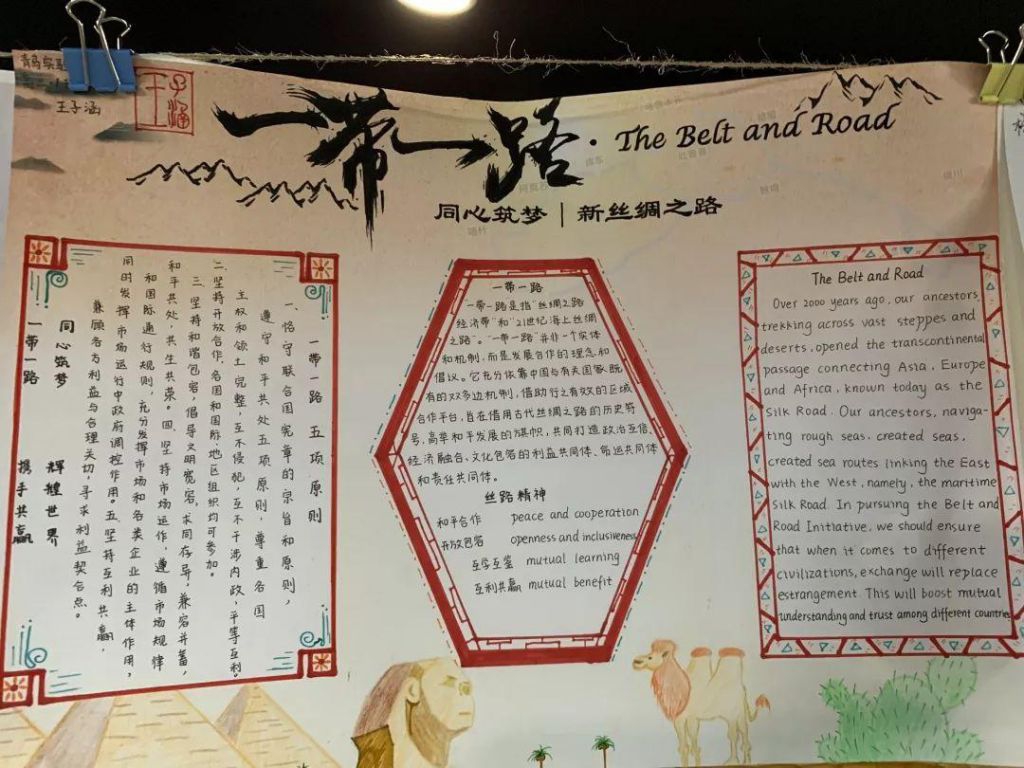 王子涵
王子涵
一带一路·The Belt and Road
同心筑梦｜新丝绸之路
一带一路 五项原则
一、恪守联合国宪章的宗旨和原则,
遵守和平共处五项原则,尊重各国
主权和领土完整,互不侵犯,互不干涉内政,平等互利。
二、坚持开放合作,各国和国际、地区组织均可参加。
三、坚持和谐包容,倡导文明宽容,求同存异,兼容并蓄,
和平共处,共生共荣。四、坚持市场运作,遵循市场规律
和国际通行规则,充分发挥市场和各类企业的主体作用,
同时发挥市场运行中政府调控作用。五、坚持互利共赢,
兼顾各方利益与合理关切,寻求利益契合点。
同心筑梦 辉煌世界
一带一路 携手共赢
一带一路
一带一路是指"丝绸之路
经济带"和"21世纪海上丝绸
之路"。"一带一路"并非一个实体
和机制,而是发展合作的理念和
倡议。它充分依靠中国与有关国家既
有的双多边机制,借助行之有效的区域
合作平台,旨在借用古代丝绸之路的历史符
号,高举和平发展的旗帜,共同打造政治互信、
经济融合、文化包容的利益共同体、命运共同体
和责任共同体。
丝路精神
和平合作 peace and cooperation
开放包容 openness and inclusiveness
互学互鉴 mutual learning
互利共赢 mutual benefit
The Belt and Road
Over 2000 years ago, our ancestors,
trekking across vast steppes and
deserts, opened the transcontinental
passage connecting Asia, Europe
and Africa, known today as the
Silk Road. Our ancestors, naviga-
ting rough seas, created seas,
created sea routes linking the East
with the West, namely, the maritime
Silk Road. In pursuing the Belt and
Road Initiative, we should ensure
that when it comes to different
civilizations, exchange will replace
estrangement. This will boost mutual
understanding and trust among different countries